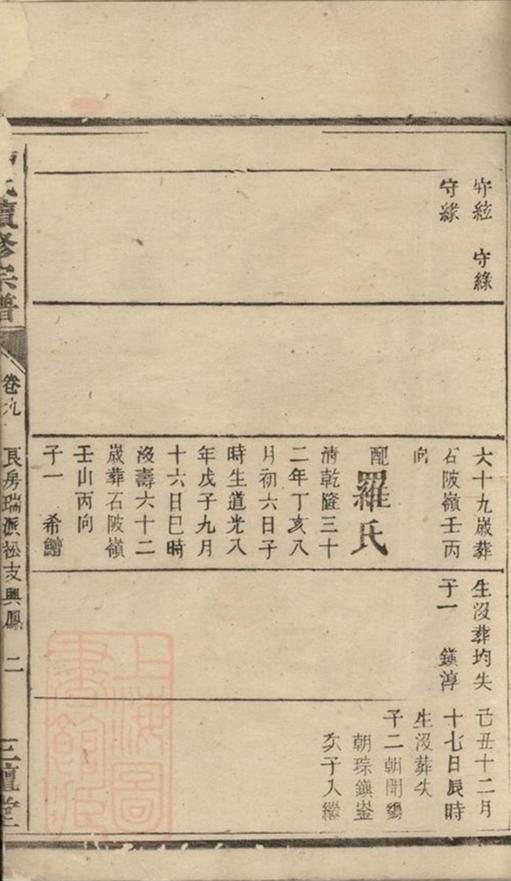 守紘 守綠
守緣
六十九歲葬
石陂嶺壬丙
向
配羅氏
清乾隆三十
二年丁亥八
月初六日子
時生道光八
年戊子九月
十六日巳時
沒壽六十二
歲葬石陂嶺
壬山丙向
子一 希
生沒葬均失
子一 鎮淳
己丑十二月
十七日辰時
生沒葬失
子二朝開
朝琮鎮崟
次子入繼
氏續修宗譜
卷九
長房瑞派松支興鳳
二
堂
上海圖
書館藏